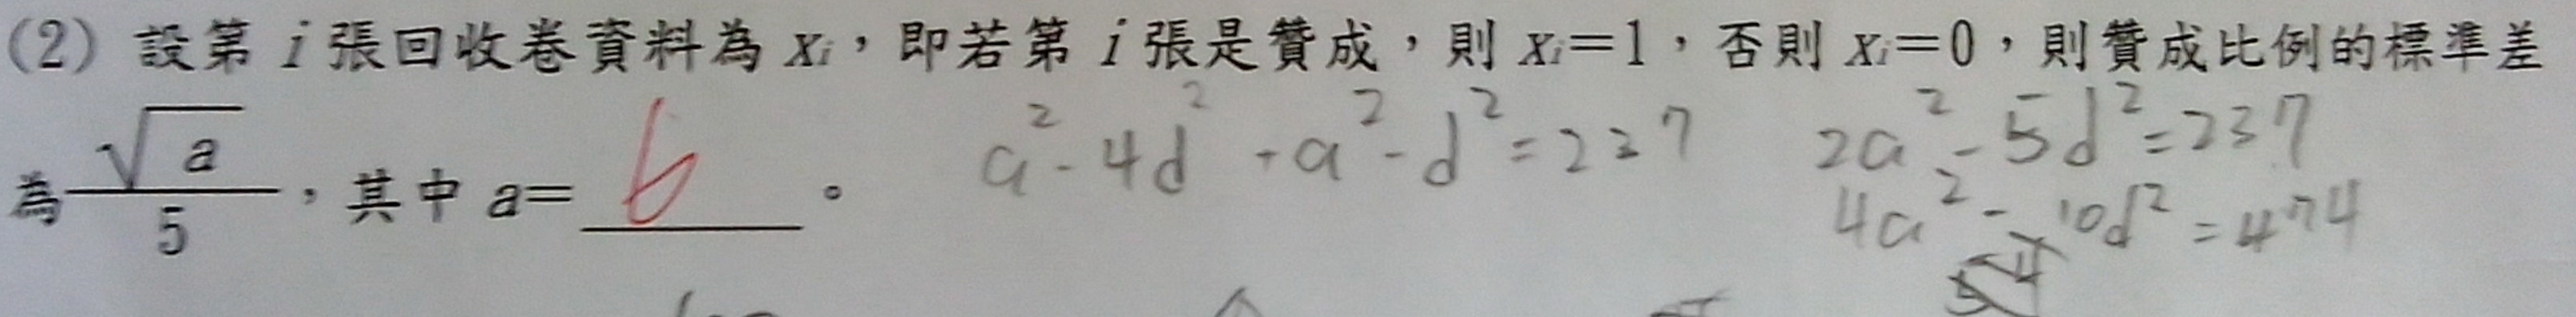 (2) 設第 i 張回收卷資料為 xᵢ，即若第 i 張是贊成，則 xᵢ=1，否則 xᵢ=0，則贊成比例的標準差
為 √a/5，其中 a= 6 。
a²-4d²+a²-d²=237
2a²-5d²=237
4a²-10d²=474